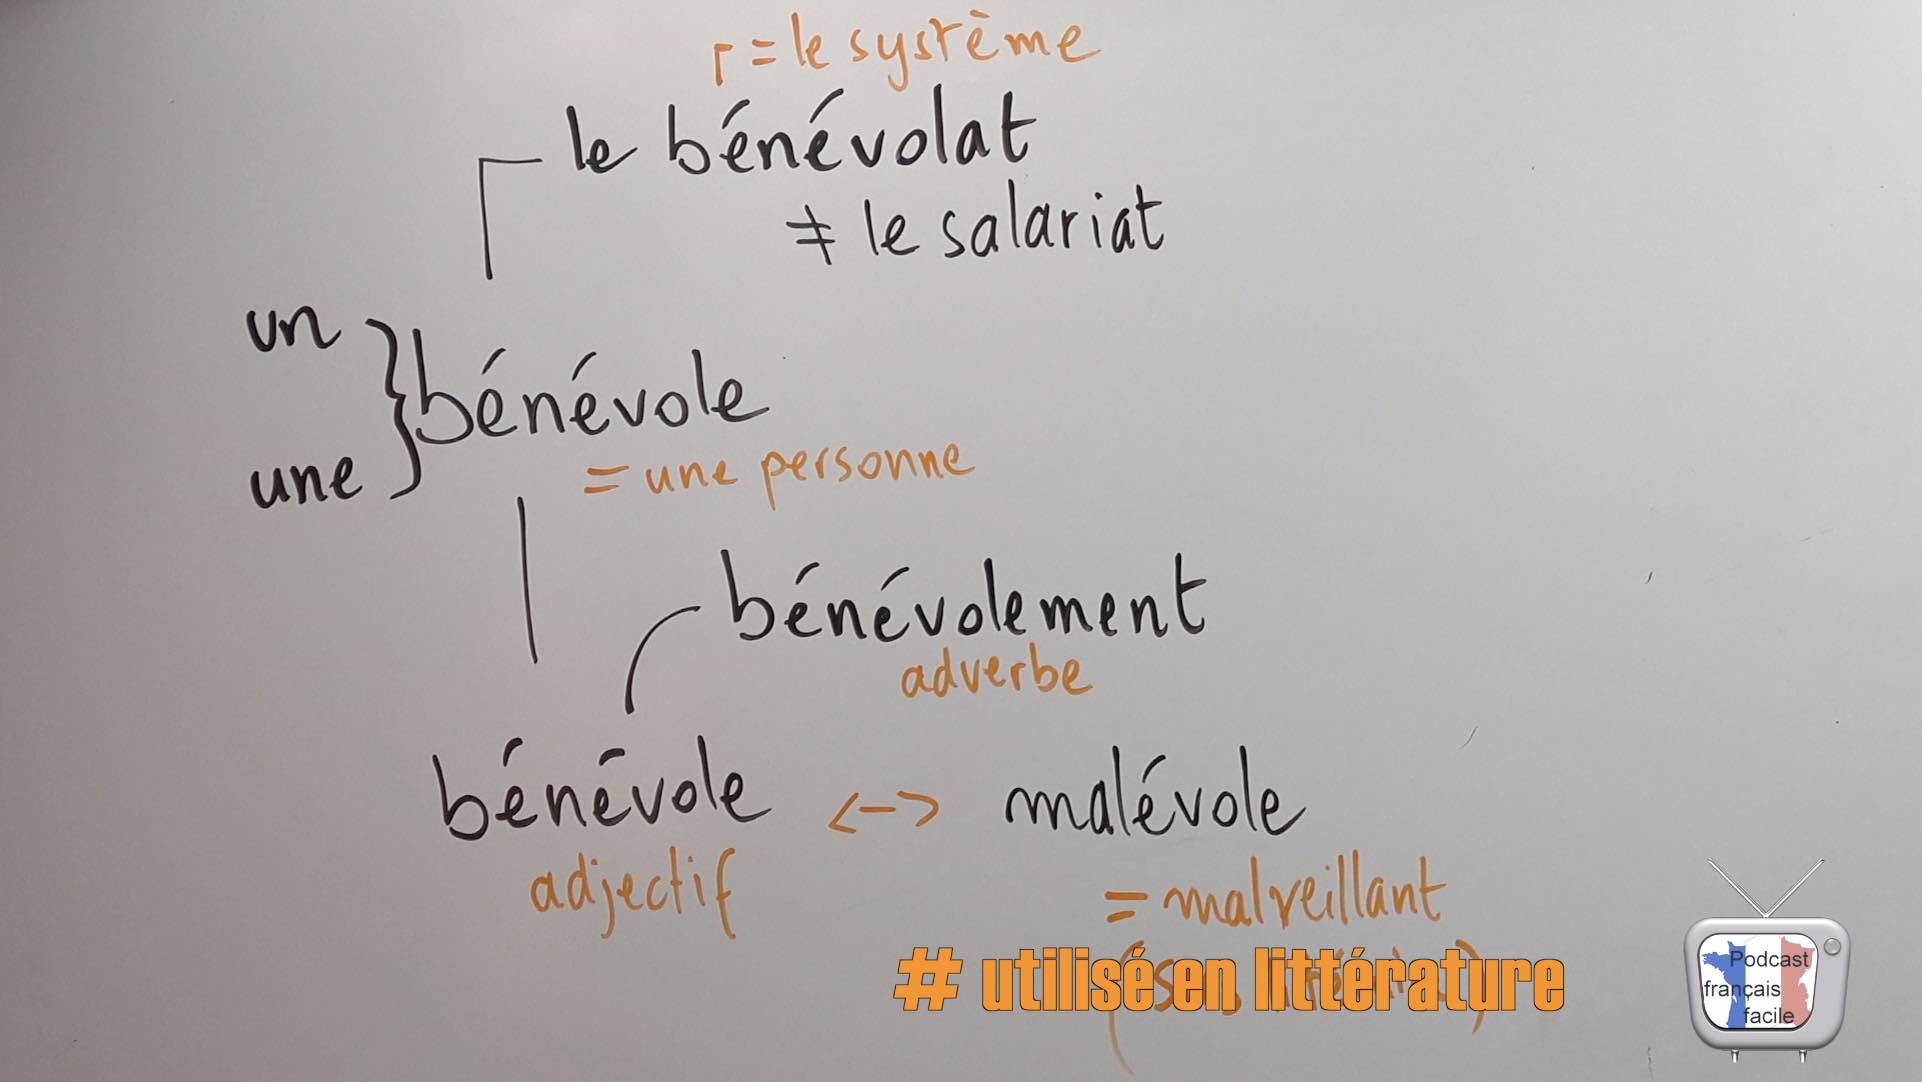 = le système
le bénévolat
≠ le salariat
un
bénévole
une
= une personne
bénévolement
adverbe
bénévole <-> malévole
adjectif
= malveillant
# utilisé en littérature
Podcast
français
facile